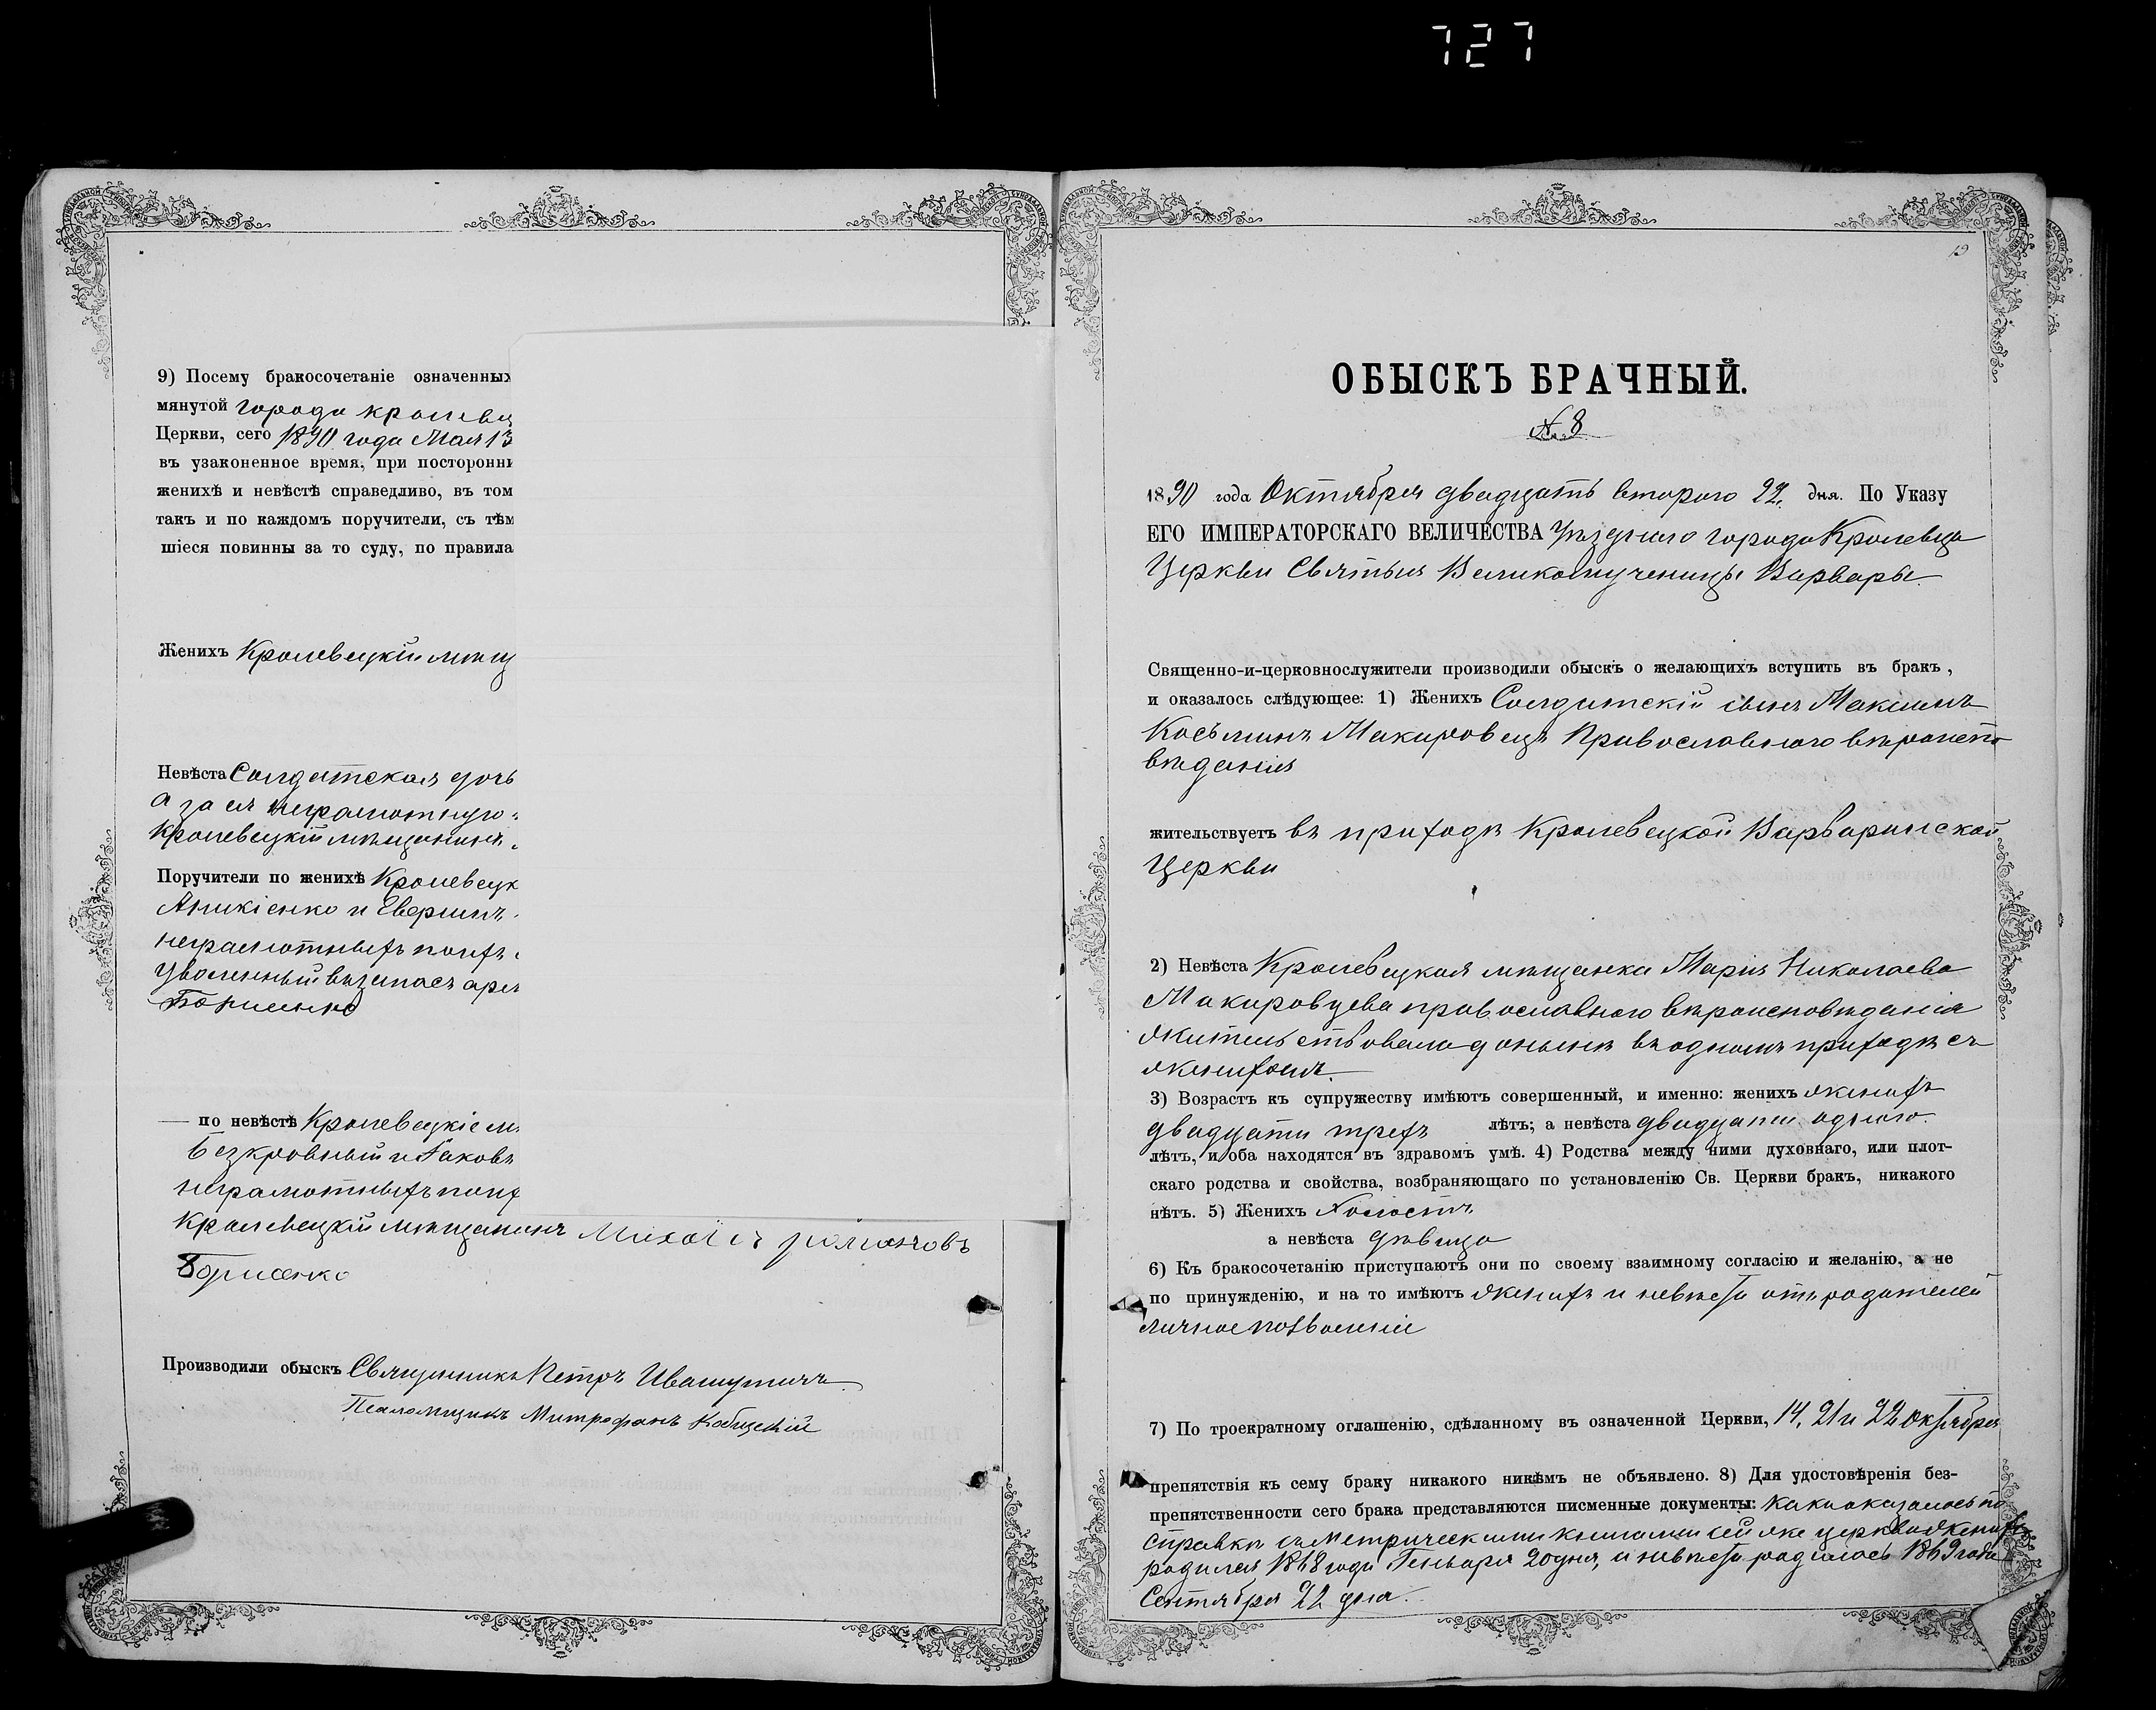 727
9) Посему бракосочетаніе означенных
мянутой города кролевц
Церкви, сего 1890 года Мая 13
въ узаконенное время, при посторонн
женихѣ и невѣстѣ справедливо, въ том
такъ и по каждомъ поручители, съ тѣм
шіеся повинны за то суду, по правила
Женихъ Кролевецкій мѣщ
Невѣста Солдатская дочь
а за ея неграмотную
Кролевецкій мѣщанинъ
Поручители по женихѣ Кролевецк
Аникіенко и
неграмотныхъ по ихъ
Уволенный въ запасъ
Борисенко
— по невѣстѣ Кролевецкіе м
Безкровный и Іаковъ
неграмотныхъ по их
Кролевецкій мѣщанинъ Михаилъ романовъ
Борисенко
Производили обыскъ Священникъ Петръ
Псаломщикъ Митрофанъ
13
ОБЫСКЪ БРАЧНЫЙ.
№ 8
1890 года Октября двадцать второго 22 дня. По Указу
ЕГО ИМПЕРАТОРСКАГО ВЕЛИЧЕСТВА Уѣзднаго города Кролевца
Церкви Святыя Великомученицы Варвары
Священно-и-церковнослужители производили обыскъ о желающихъ вступить въ бракъ,
и оказалось слѣдующее: 1) Женихъ Солдатскій сынъ Максимъ
Косьминъ Макаровецъ Православнаго вѣроиспо
вѣданія
жительствуетъ въ приходѣ Кролевецкой Варваринской
Церкви
2) Невѣста Кролевецкая мѣщанка Марія Николаева
Макаровцева православнаго вѣроисповѣданія
жительствовала донынѣ въ одномъ приходѣ съ
женихомъ.
3) Возрастъ къ супружеству имѣютъ совершенный, и именно: женихъ женихъ
двадцати трехъ лѣтъ; а невѣста двадцати одного.
лѣтъ, и оба находятся въ здравомъ умѣ. 4) Родства между ними духовнаго, или плот-
скаго родства и свойства, возбраняющаго по установленію Св. Церкви бракъ, никакого
нѣтъ. 5) Женихъ Холостъ
а невѣста дѣвица
6) Къ бракосочетанію приступаютъ они по своему взаимному согласію и желанію, а не
по принужденію, и на то имѣютъ женихъ и невѣста отъ родителей
личное позволеніе
7) По троекратному оглашенію, сдѣланному въ означенной Церкви, 14, 21 и 22 октября
препятствія къ сему браку никакого никѣмъ не объявлено. 8) Для удостовѣренія без-
препятственности сего брака представляются писменные документы: какъ оказалось по
справкѣ съ метрическими книгами сей же церкви женихъ
родился 1868 года Генваря 20 дня, а невѣста родилась 1869 года
Сентября 22 дня.